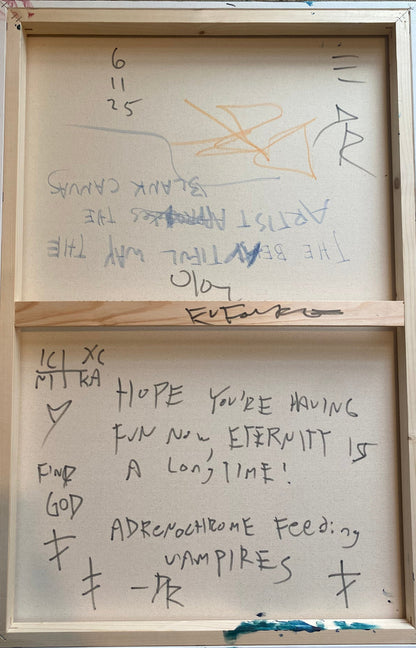 6
11
25
DR
THE BEAUTIFUL WAY THE
ARTIST THE
BLANK CANVAS
IC XC
NI KA
HOPE YOU'RE HAVING
FUN NOW, ETERNITY IS
A LONG TIME!
FIND
GOD
ADRENOCHROME FEEDING
VAMPIRES
-DR